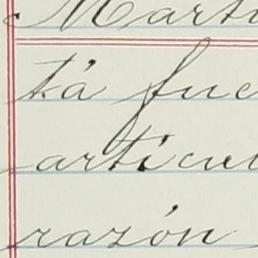 Marti
tá fue
articul
razón